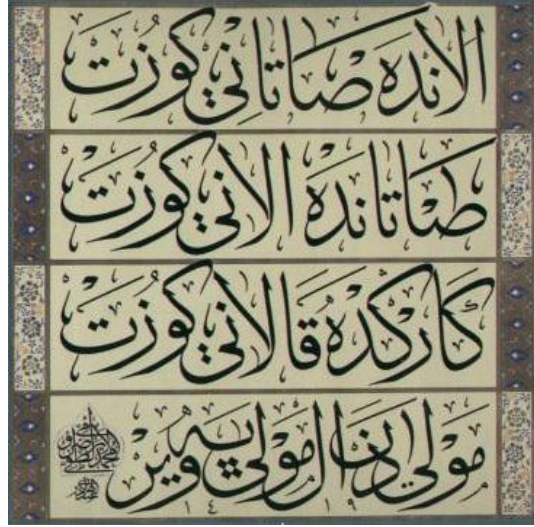 الانده صاتاني كوزت
صاتانده الاني كوزت
كاركده قالاني كوزت
مولى دن ال مولى يه وير
١٤١٩